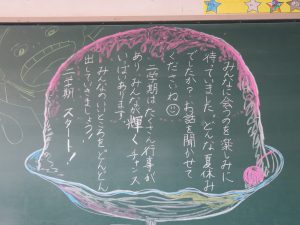 みんなに会うのを楽しみに
待っていました。どんな夏休み
でしたか?お話を聞かせて
くださいね☺
二学期はたくさん行事が
あり、みんなが輝くチャンス
いっぱいあります。
みんなのいいところをどんどん
出していきましょう!
二学期 スタート!